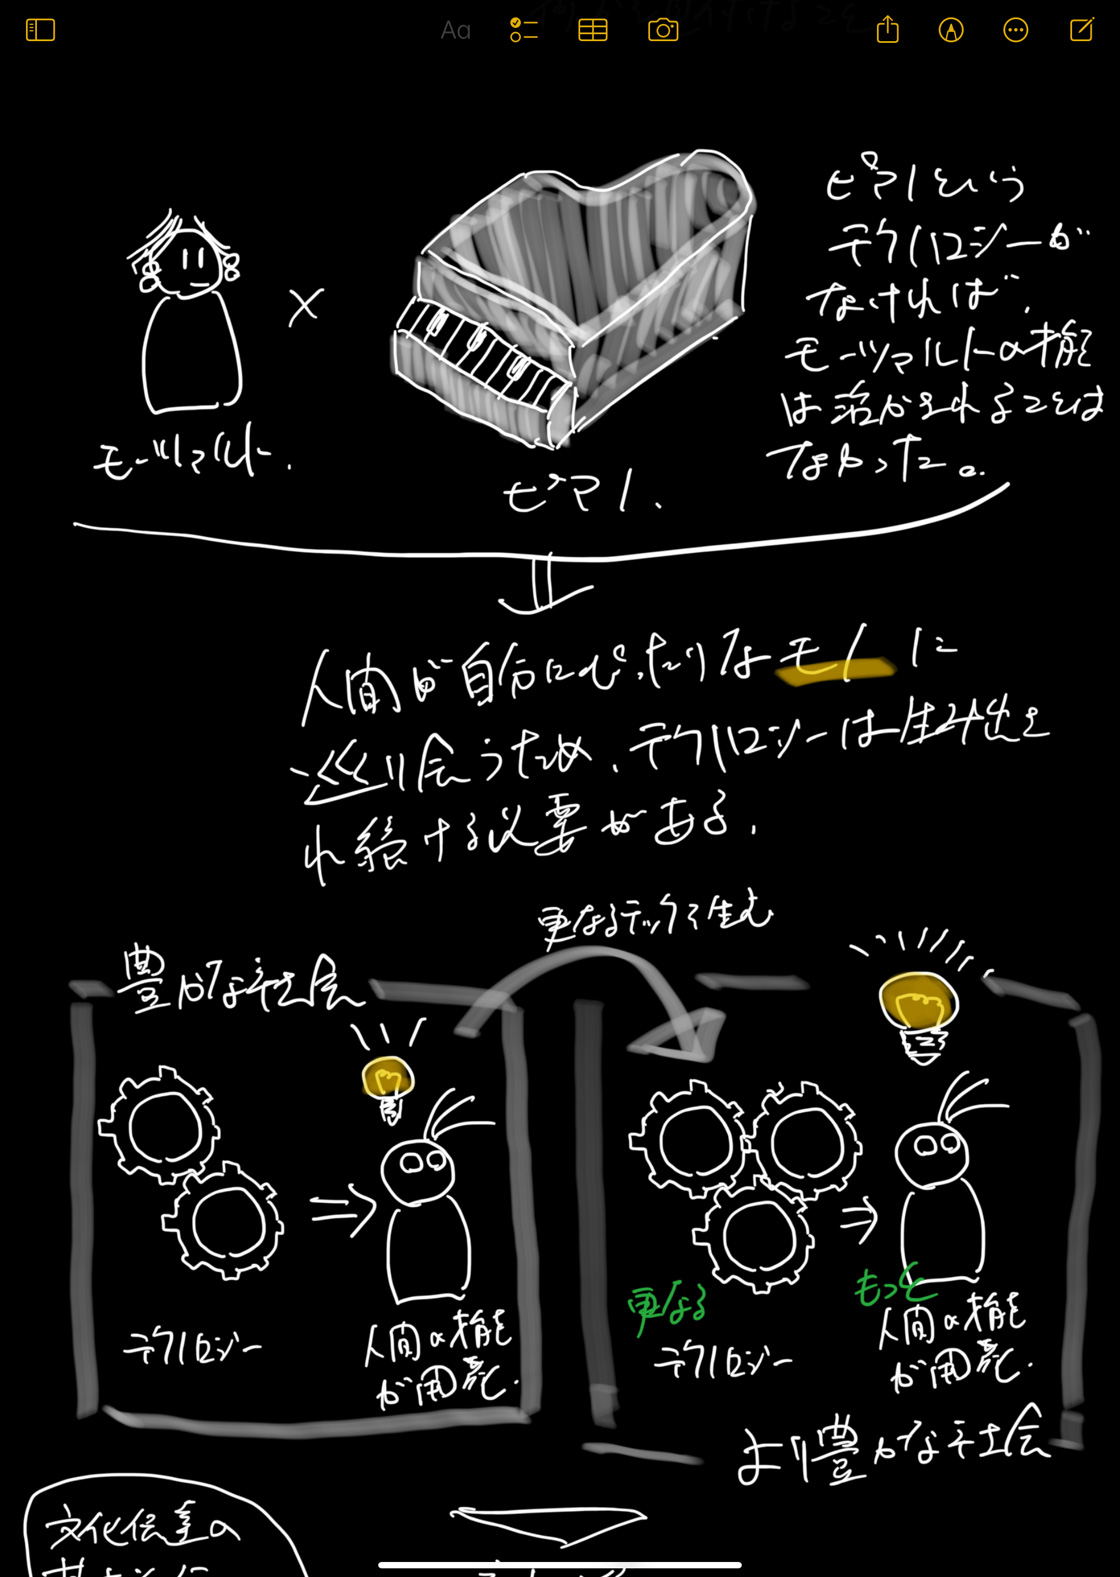 Aa
ピアノという
テクノロジーが
なければ、
モーツァルトの才能
は活かされることは
なかった。
モーツァルト.
×
ピアノ.
人間が自分にぴったりなモノに
巡り会うため、テクノロジーは生み出さ
れ続ける必要がある.
更なるテックを生む
豊かな社会
テクノロジー
人間の才能
が開花.
更なる
テクノロジー
もっと
人間の才能
が開花.
より豊かな社会
文化伝達の